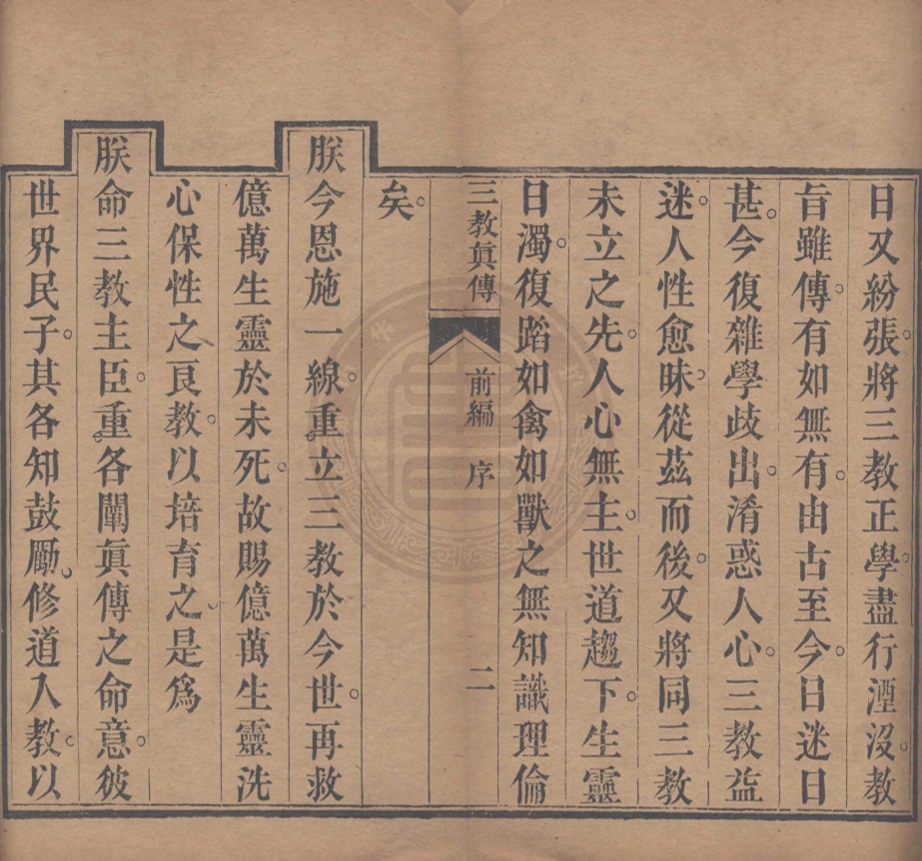 日又紛張將三教正學盡行湮沒教
旨雖傳有如無有由古至今日迷日
甚今復雜學歧出淆惑人心三教益
迷人性愈昧從茲而後又將同三教
未立之先人心無主世道趨下生靈
日濁復蹈如禽如獸之無知識理倫
三教眞傳 前編 序 二
矣
朕今恩施一線重立三教於今世再救
億萬生靈於未死故賜億萬生靈洗
心保性之良教以培育之是爲
朕命三教主臣重各闡眞傳之命意彼
世界民子其各知鼓勵修道入教以